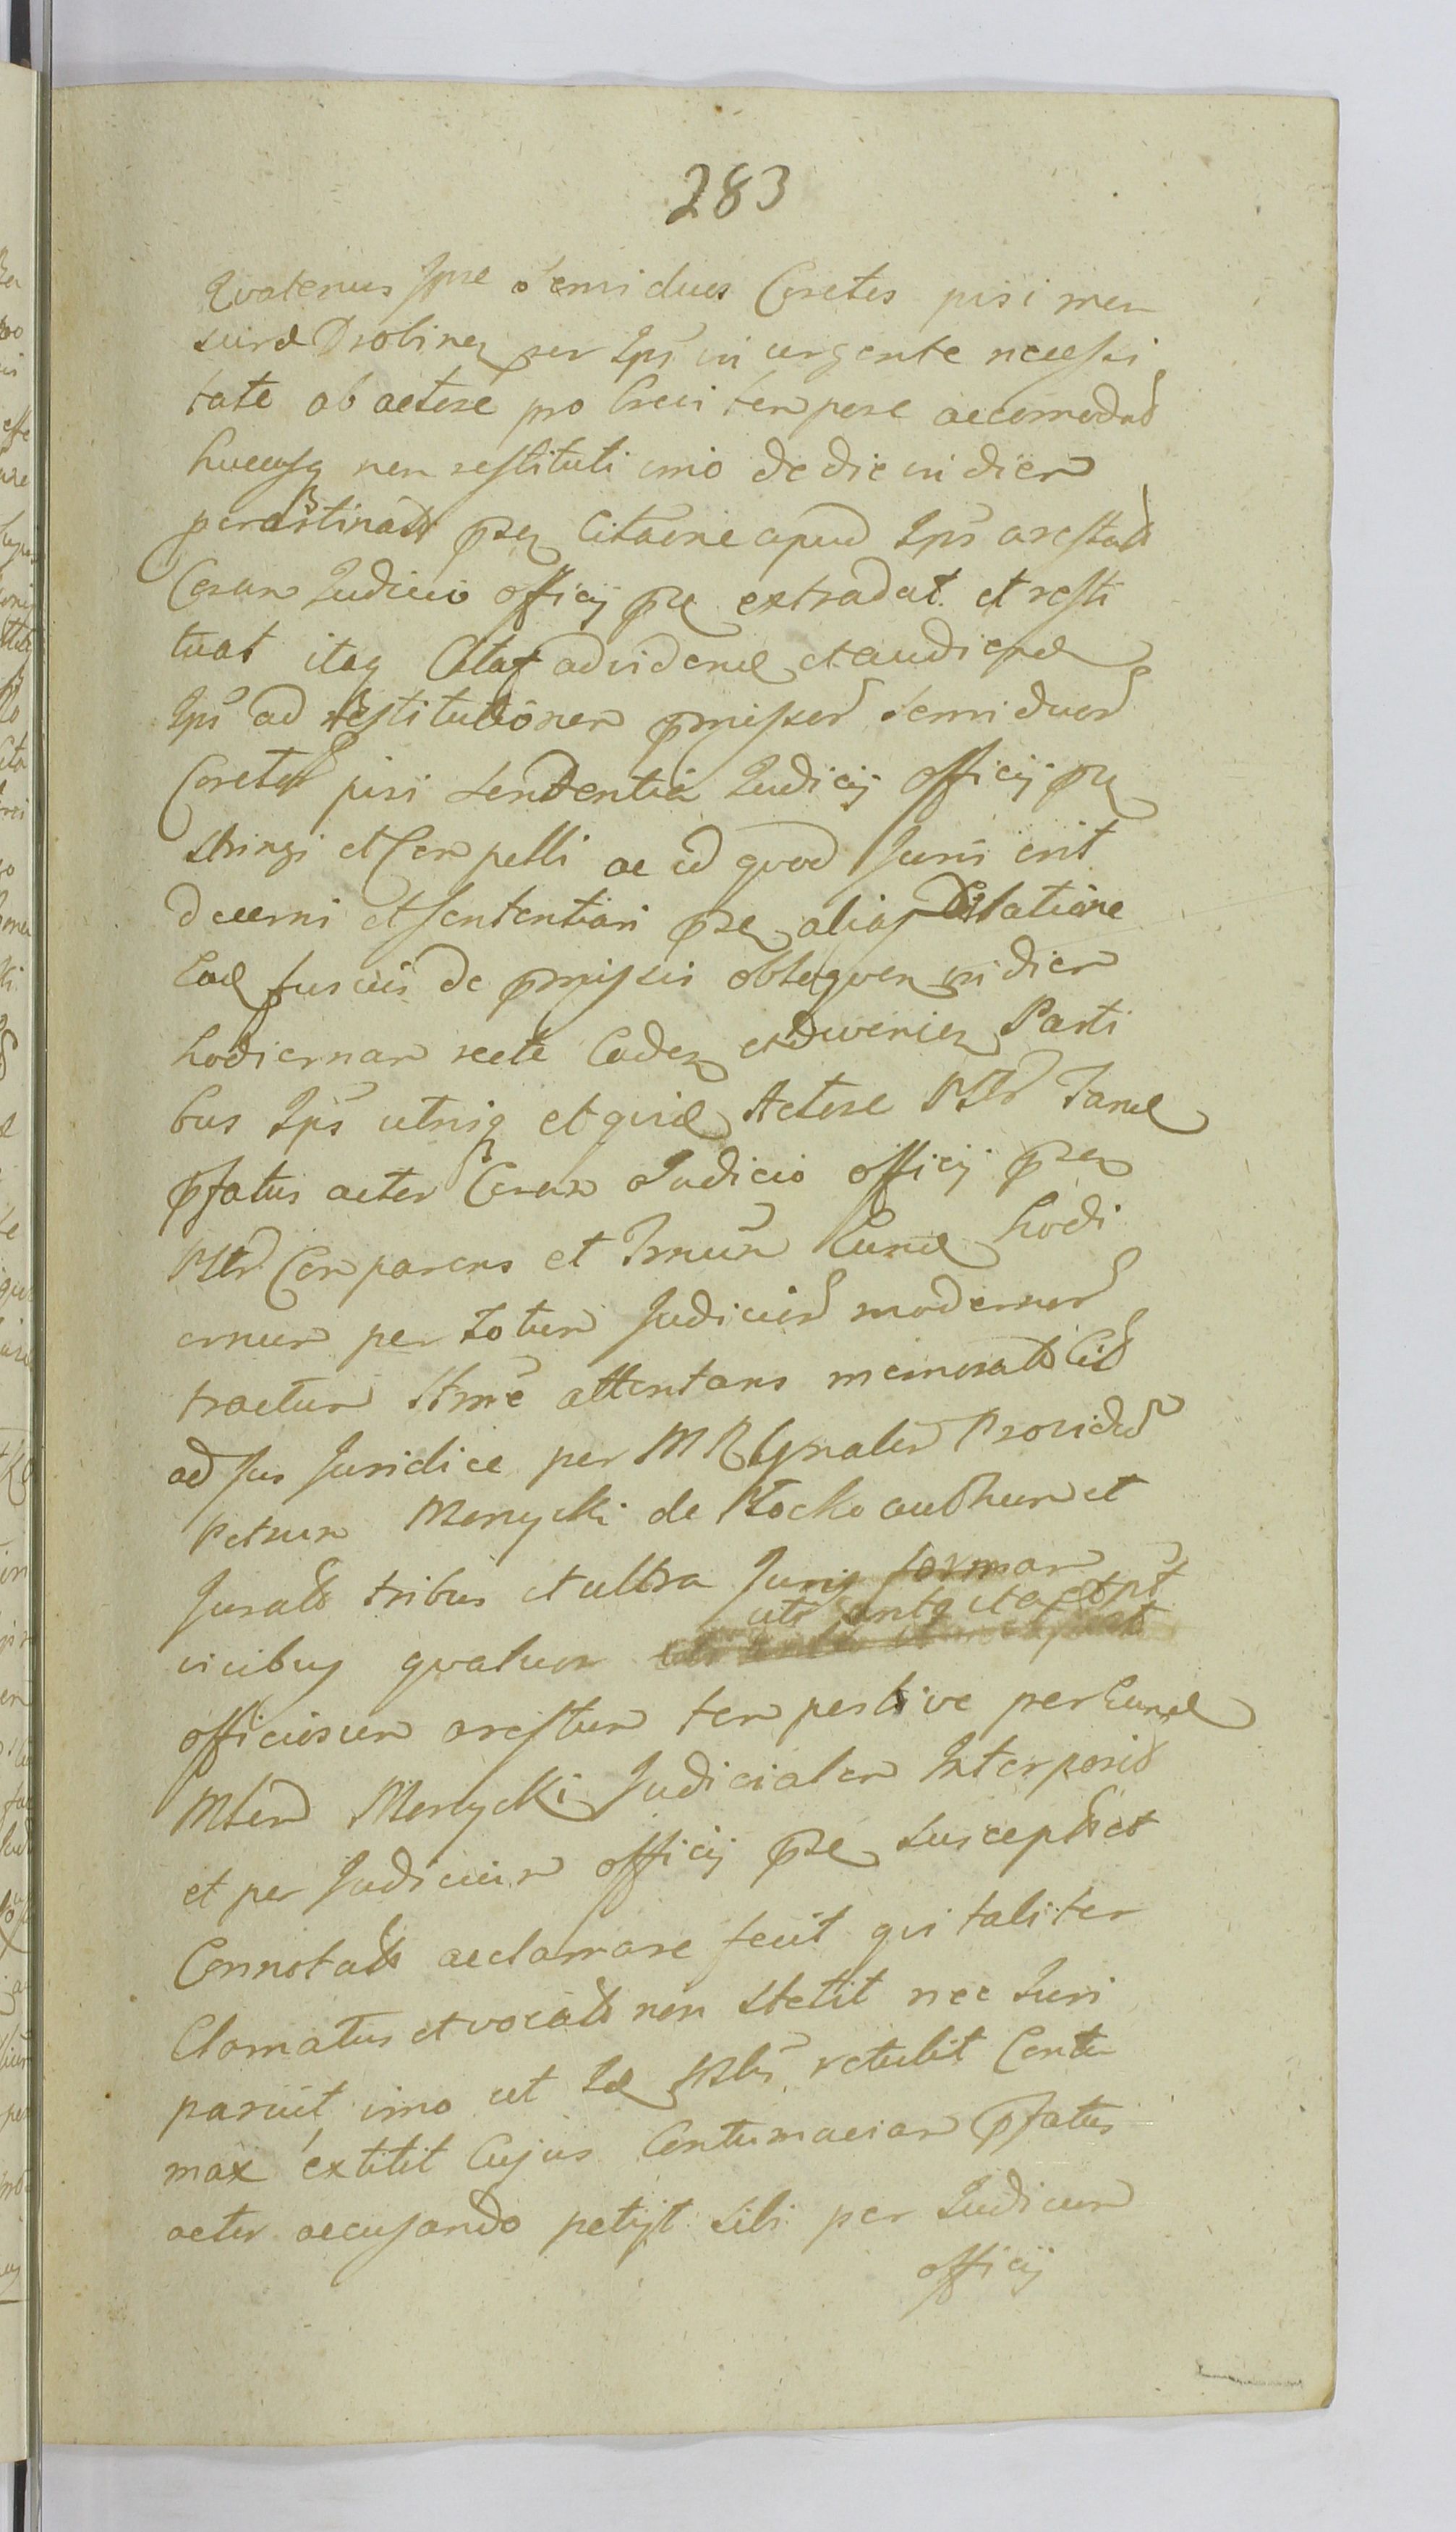 283
Qvatenus Ipse semi duos Coretos pisi men
surae Drobinen per Ips in urgente necessi
tate ab actore pro brevi tempore accomodat
hucusq non restituti imo de die in diem
perastinat psen Citatione apud Ips arestat
Coram Judicio officij pse extradat et resti
tuat itaq Citat ad vidend et audiend
Ips ad restitutionem pmissor semi duor
Coretor pisi sententia Judicij officij pse
stringi et Compelli ac id quod Juris erit
decerni et sententiari psen alias Dilatione
Ead suscis de pmissis obloquen in diem
hodiernam recte Caden et dvenien Parti
bus Ips utrisq et quid Actore Mtr Jane
pfatus actor Coram Judicio officij psen
Mtr Comparens et Trnum Eund hodi
ernum per totum Judicium modernor
tractum Strne attentans memorat Cit
ad Jus Juridice per M R Gnalem Providum
Petrum Menycki de Płocko authum et
Jurat tribus et ultra Juris formam
vicibus quatuor uti antq et accept
officiosum arestum tempestive per Eund
Mtem Menycki Judicialem Interposit
et per Judicium officij pse suscept et
Connotat acclamare fecit qui taliter
Clamatus et vocat non stetit nec Juri
paruit imo ut Id Mtris retulit Contu
max extitit Cujus Contumaciam pfatus
actor accusando petijt sibi per Judicium
officij